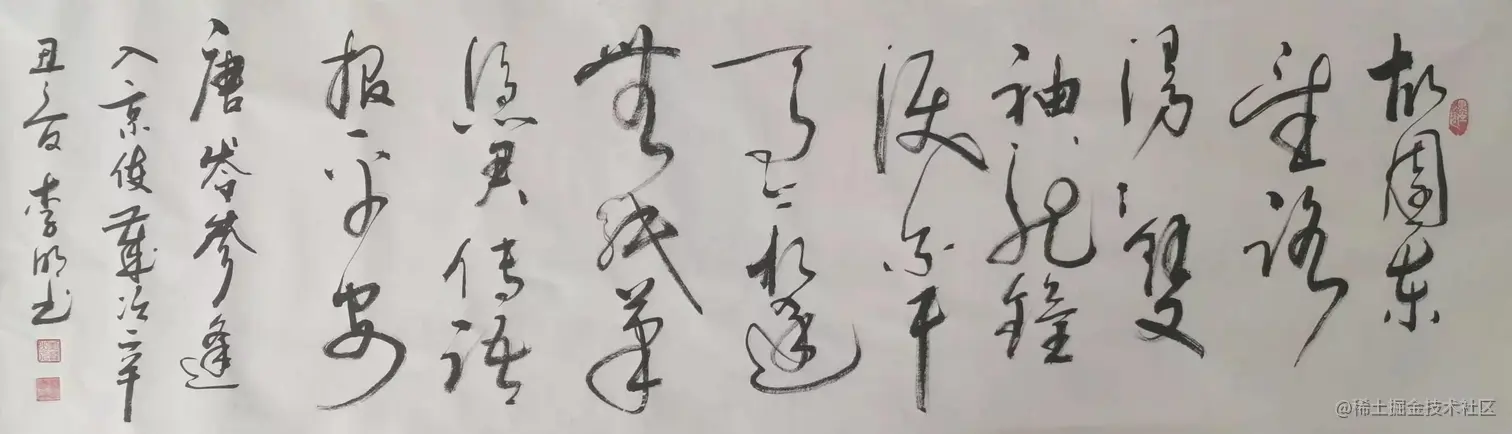 故園東
望路
漫〻雙
袖龍鐘
淚不干
馬上相逢
無紙筆
憑君傳語
報平安
唐岑參逢
入京使歲次辛
丑之夏李明书
@稀土掘金技术社区